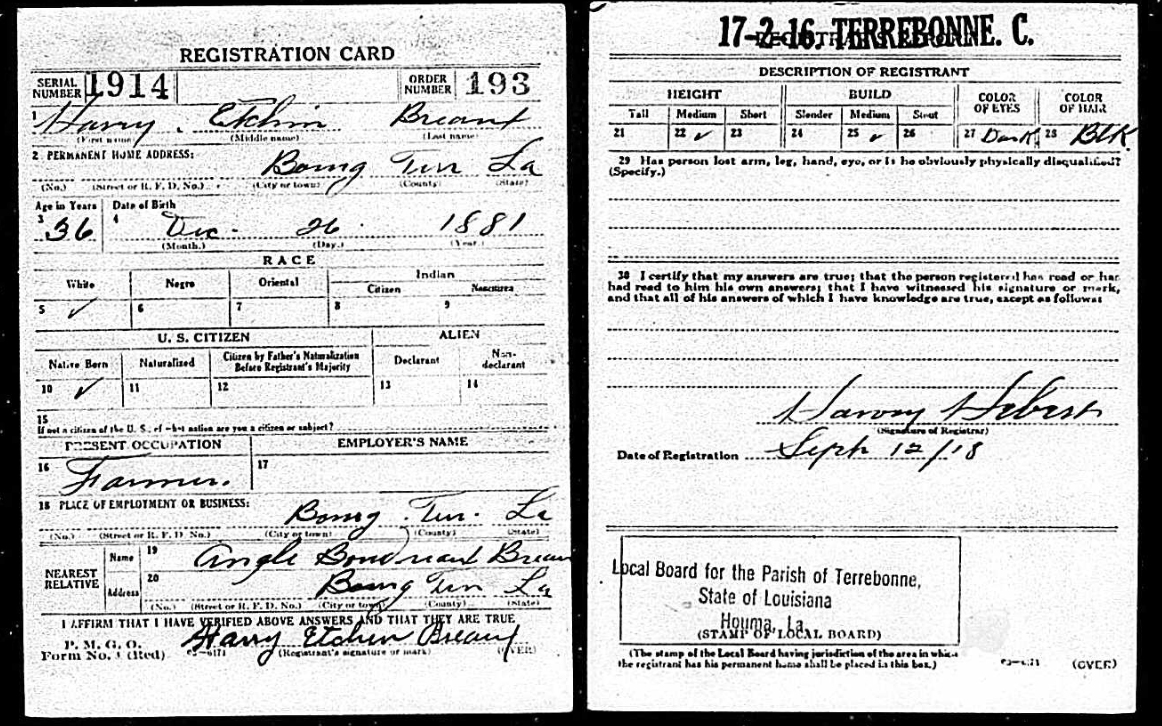 REGISTRATION CARD
SERIAL NUMBER 1914 ORDER NUMBER 193
1 Harry Etchin Breaux
(First name) (Middle name) (Last name)
2 PERMANENT HOME ADDRESS:
Bourg Ter La
(No.) (Street or R. F. D. No.) (City or town) (County) (State)
Age in Years Date of Birth
3 36 4 Dec. 26 1881
(Month.) (Day.) (Year.)
RACE
White Negro Oriental Indian
Citizen Noncitizen
5 ✓ 6 7 8 9
U. S. CITIZEN ALIEN
Native Born Naturalized Citizen by Father's Naturalization Before Registrant's Majority Declarant Non-declarant
10 ✓ 11 12 13 14
15
If not a citizen of the U. S., of what nation are you a citizen or subject?
PRESENT OCCUPATION EMPLOYER'S NAME
16 Farmer. 17
18 PLACE OF EMPLOYMENT OR BUSINESS:
Bourg Ter. La
(No.) (Street or R. F. D. No.) (City or town) (County) (State)
NEAREST RELATIVE
Name 19 Angle Boudreaux Breaux
Address 20 Bourg Ter La
(No.) (Street or R. F. D. No.) (City or town) (County) (State)
I AFFIRM THAT I HAVE VERIFIED ABOVE ANSWERS AND THAT THEY ARE TRUE
P. M. G. O.
Form No. 1 (Red) Harry Etchen Breaux
(Registrant's signature or mark) (OVER)
17-2-16. TERREBONNE. C.
DESCRIPTION OF REGISTRANT
HEIGHT BUILD COLOR OF EYES COLOR OF HAIR
Tall Medium Short Slender Medium Stout
21 22 ✓ 23 24 25 ✓ 26 27 Dark 28 Blk
29 Has person lost arm, leg, hand, eye, or is he obviously physically disqualified?
(Specify.)
30 I certify that my answers are true; that the person registered has read or has
had read to him his own answers; that I have witnessed his signature or mark,
and that all of his answers of which I have knowledge are true, except as follows:
Harvey Hebert
(Signature of Registrar)
Date of Registration Sept 12/18
Local Board for the Parish of Terrebonne,
State of Louisiana
Houma, La.
(STAMP OF LOCAL BOARD)
(The stamp of the Local Board having jurisdiction of the area in which
the registrant has his permanent home shall be placed in this box.)
(OVER)